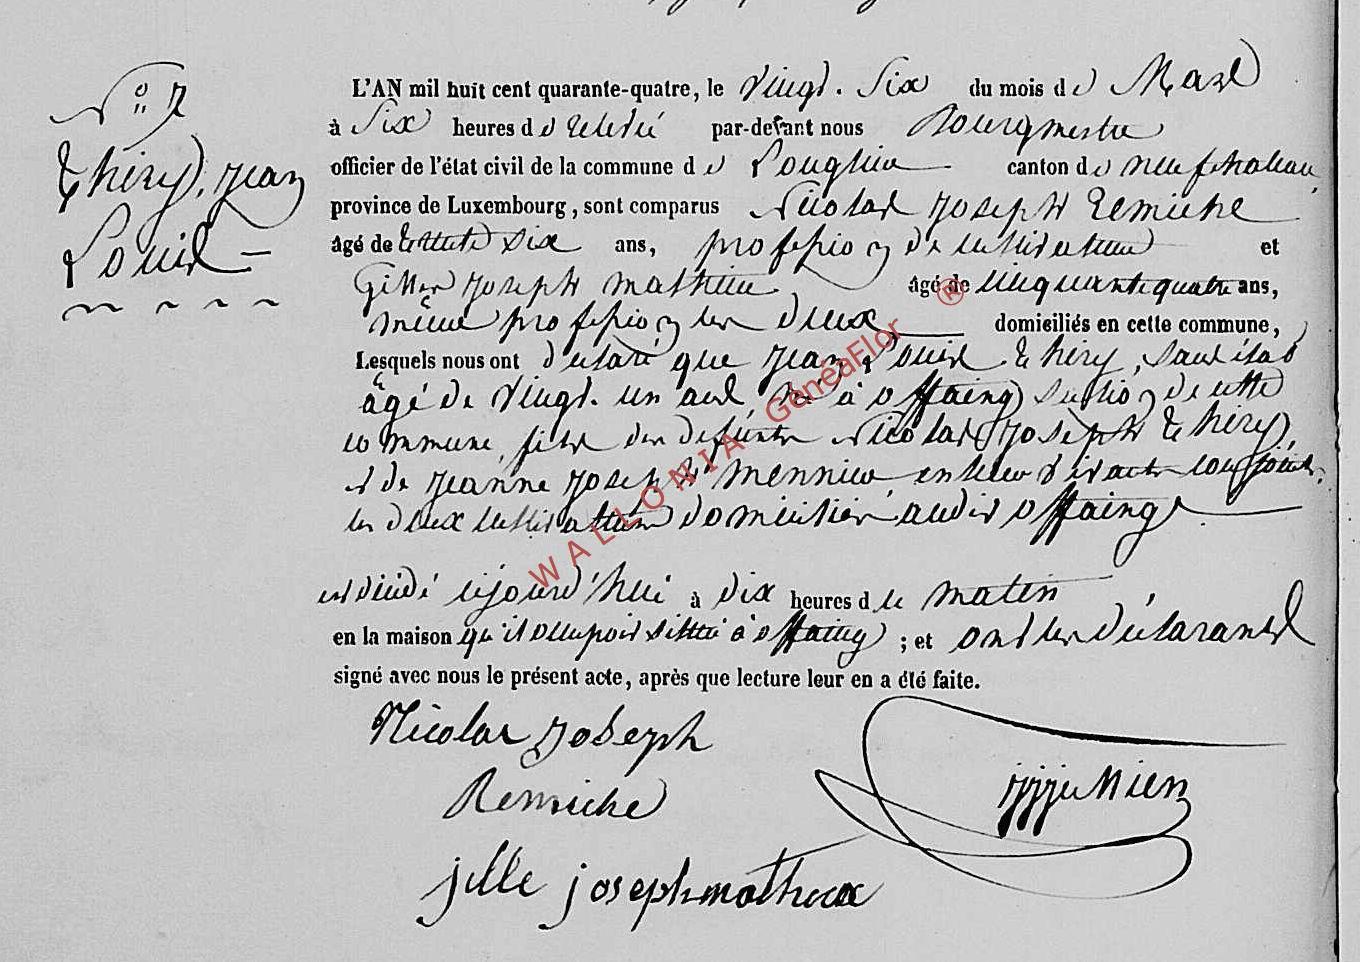 N° 7
Thiry, Jean
Louis
L'AN mil huit cent quarante-quatre, le vingt-six du mois de Mars
à Six heures de relevée par-devant nous Bourgmestre
officier de l'état civil de la commune de Longlier canton de neufchateau,
province de Luxembourg, sont comparus Nicolas Joseph Remiche
âgé de trente six ans, profession de cultivateur et
Gilles Joseph Matheux âgé de cinquante quatre ans,
même profession les deux domiciliés en cette commune,
Lesquels nous ont déclaré que Jean Louis Thiry, sans état
âgé de vingt-un ans, né à offaing section de cette
commune, fils des defunts Nicolas Joseph Thiry,
et de Jeanne Joseph en leur vivant conjoints,
les deux cultivateurs domiciliés audit offaing
est décédé cejourd'hui à dix heures du matin
en la maison qu'il occupoit située à offaing ; et ont les déclarants
signé avec nous le présent acte, après que lecture leur en a été faite.
Nicolas Joseph
Remiche
jille joseph matheux
WALLONIA GénéaFlor ®